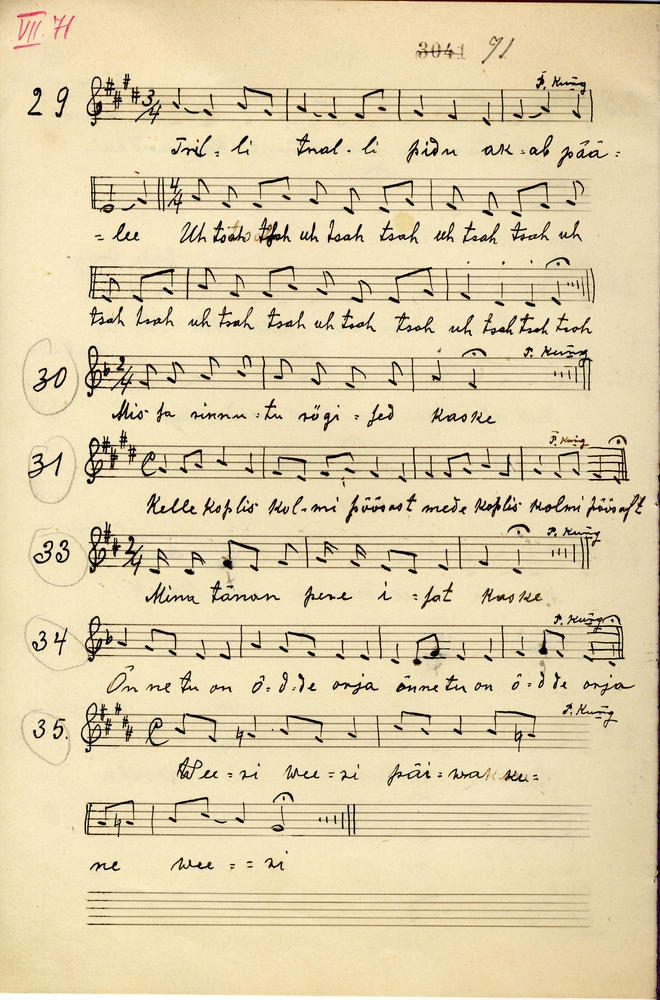 VII. 71
3041 71
29 P. Kung
3/4
Tril = li tral - li pidu ak = ab pää =
4/4
= lee Uh tsah tsah uh tsah tsah uh tsah tsah uh
tsah tsah uh tsah tsah uh tsah tsah uh tsah tsah tsah
30 P. Kung
2/4
Mis- sa sinnu = tu sögi = sed kaske
31 P. Kung
Kelle koplis kol-mi põõsast mede koplis kolmi põõsast
33 P. Kung
2/4
Mina tänan pere i = sat kaske
34 P. Kung
Õnnetu on õ = d de orja õnnetu on õ = d de orja
35. P. Kung
Wee = si wee = si päi = wakese =
ne wee = = si